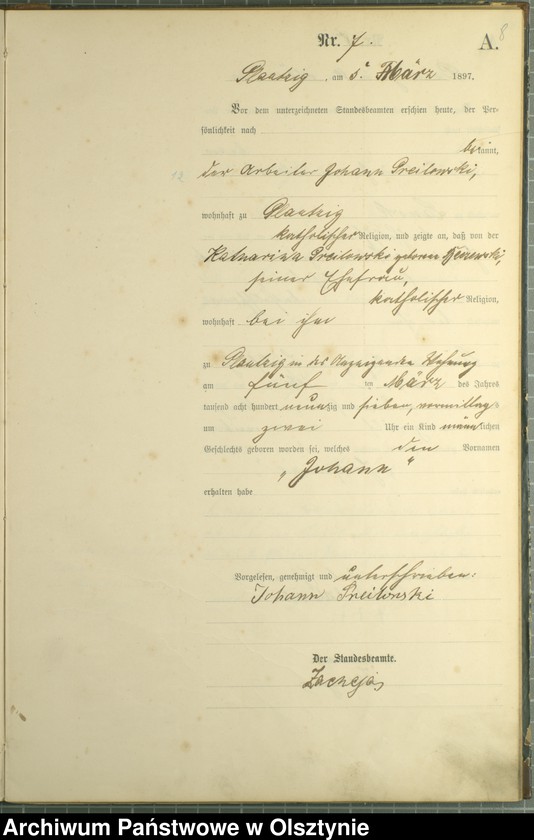 8
Nr. 7.
A.
Plautzig, am 5. März 1897.
Vor dem unterzeichneten Standesbeamten erschien heute, der Per-
sönlichkeit nach
bekannt,
der Arbeiter Johann Preilowski,
wohnhaft zu Plautzig
katholischer Religion, und zeigte an, daß von der
Katharina Preilowski geborene
seiner Ehefrau,
katholischer Religion,
wohnhaft bei ihm
zu Plautzig in des Anzeigenden Wohnung
am fünf ten März des Jahres
tausend acht hundert neunzig und sieben, vormittag s
um zwei Uhr ein Kind männlichen
Geschlechts geboren worden sei, welches den Vornamen
„Johann“
erhalten habe
Vorgelesen, genehmigt und unterschrieben:
Johann Preilowski
Der Standesbeamte.
Archiwum Państwowe w Olsztynie